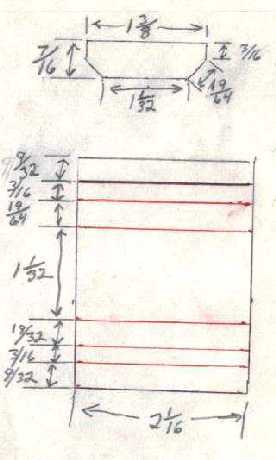 1 3/8
7/16
3/16
1 1/32
19/64
9/32
3/16
19/64
1 1/32
19/32
3/16
9/32
2 1/16